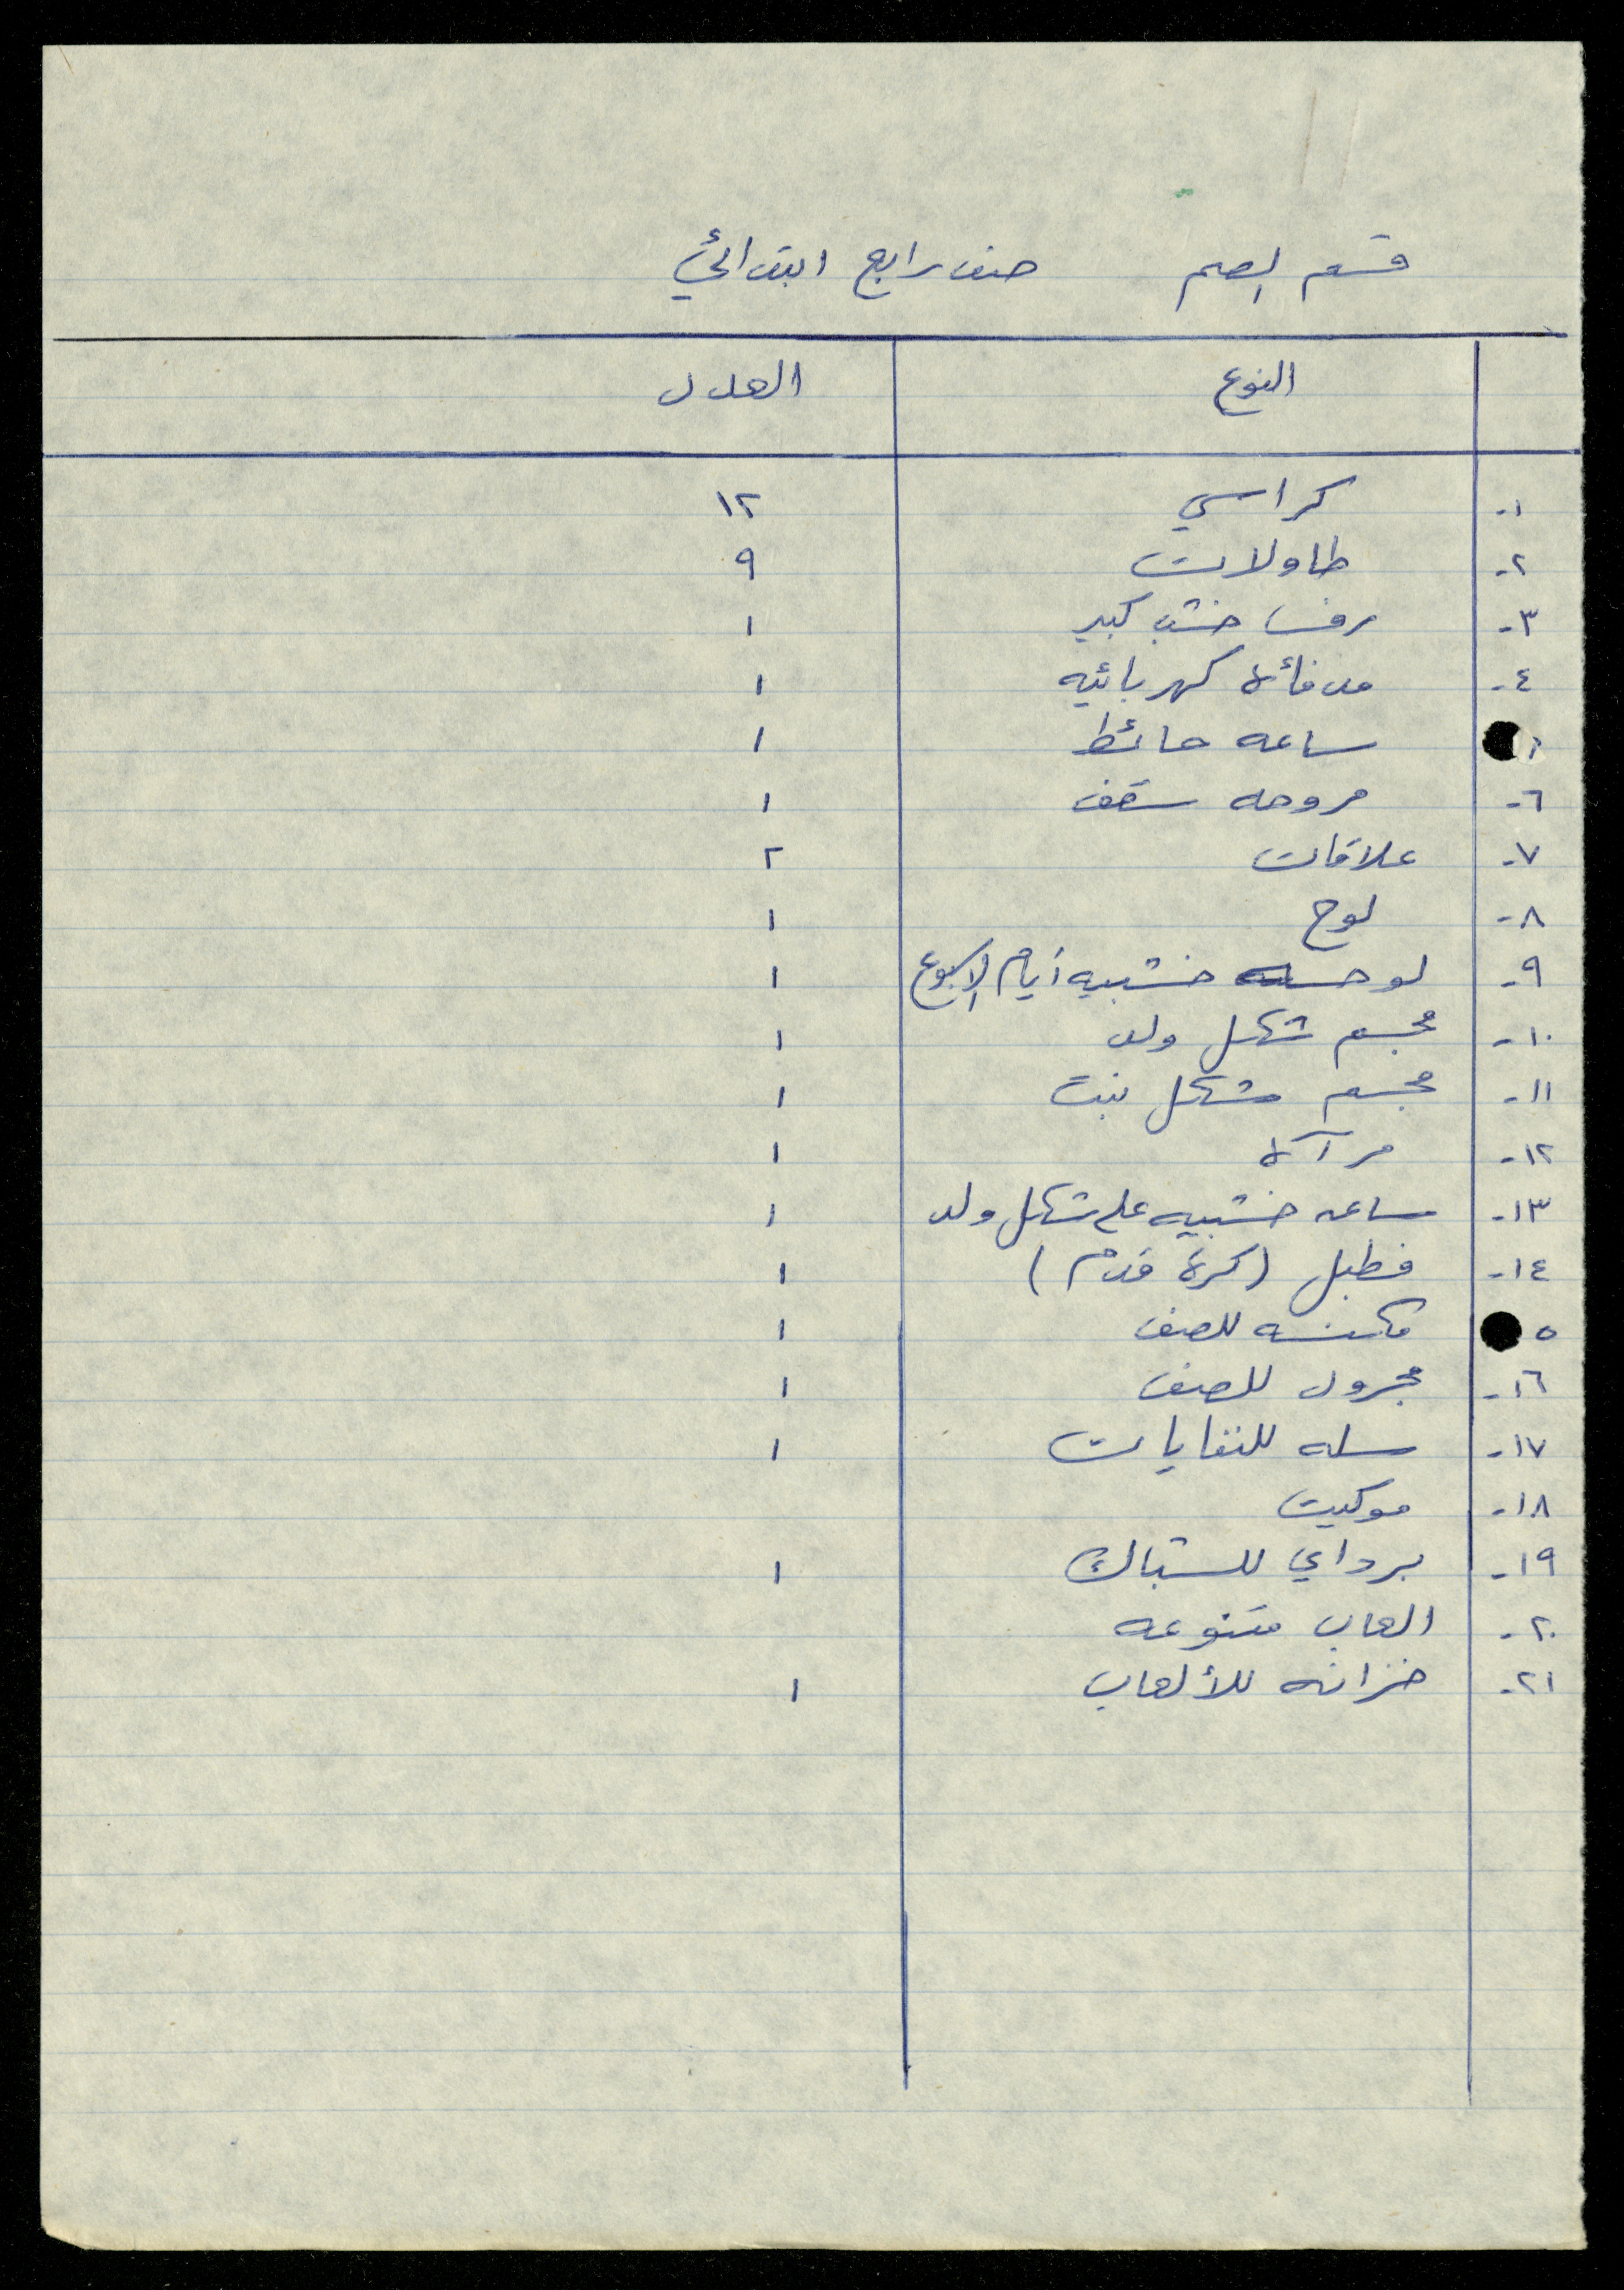 قسم الصم صف رابع ابتدائي
النوع العدد
١- كراسي ١٢
٢- طاولات ٩
٣- رف خشب كبير ١
٤- مدفأة كهربائيه ١
ساعه حائط ١
٦- مروحه سقف ١
٧- علاقات ٢
٨- لوح ١
٩- لوحه خشبيه أيام الاسبوع ١
١٠- مجسم شكل ولد ١
١١- مجسم شكل بنت ١
١٢- مرآة ١
١٣- ساعه خشبيه على شكل ولد ١
١٤- فطبل (كرة قدم) ١
٥ مكنسه للصف ١
١٦- مجرود للصف ١
١٧- سله للنفايات ١
١٨- موكيت
١٩- برداي للشباك ١
٢٠- العاب متنوعه
٢١- خزانه للألعاب ١